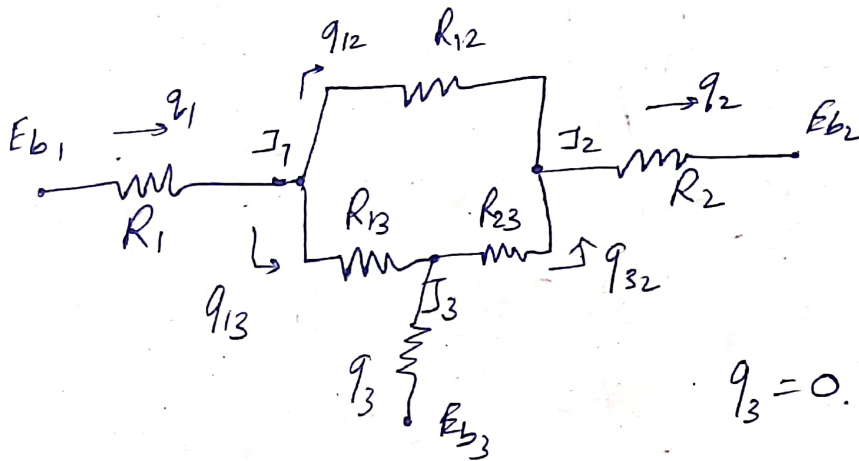 q12
R12
q1
q2
Eb1
J1
J2
Eb2
R1
R13
R23
R2
q13
J3
q32
q3
Eb3
q3 = 0.